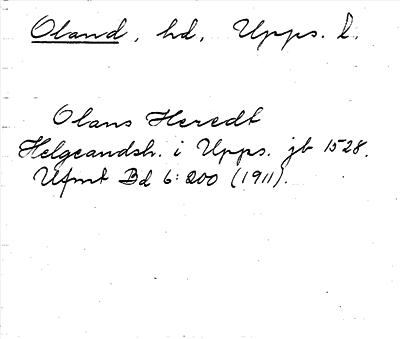 Oland, hd, Upps. l.
Olans Heredt
Helgeandsh. i Upps. jb 1528.
Ufmt Bd 6:200 (1911).